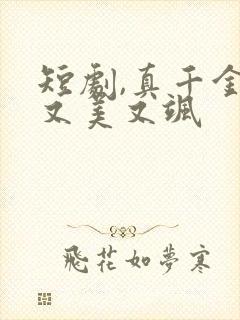 短劇,真千金
又美又颯
飛花如夢寒